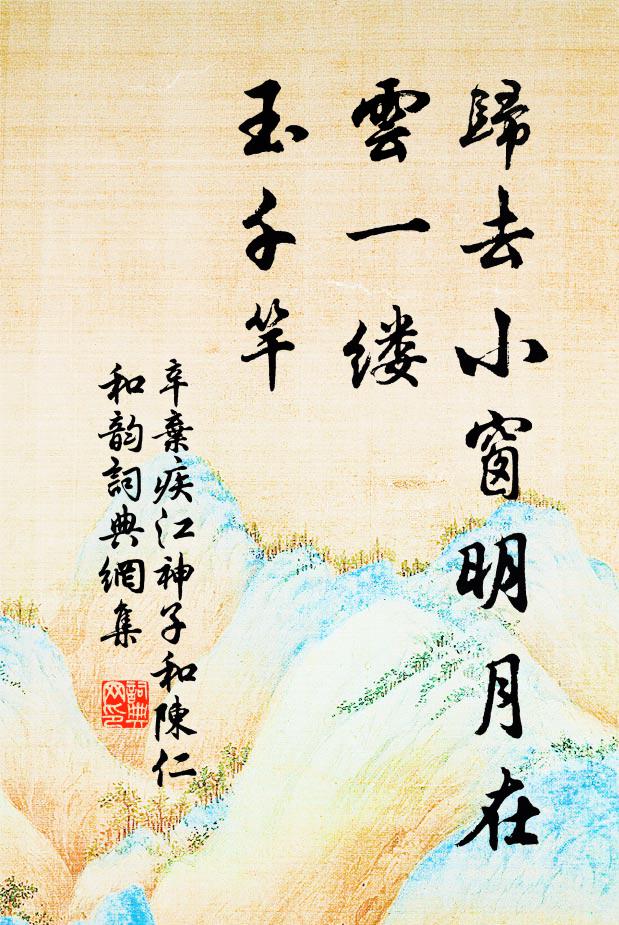 歸去小窗明月在
雲一缕
玉千竿
辛棄疾江神子和陳仁
和韵詞典網集
詞典
网印